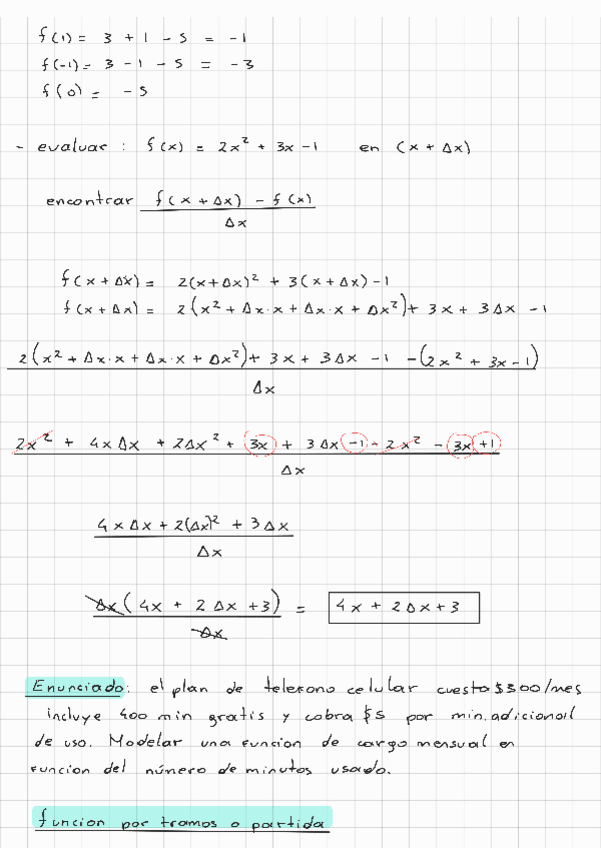 f(1) = 3 + 1 - 5 = -1
f(-1) = 3 - 1 - 5 = -3
f(0) = -5
- evaluar : f(x) = 2x² + 3x - 1 en (x + Δx)
encontrar f(x + Δx) - f(x)
Δx
f(x + Δx) = 2(x+Δx)² + 3(x + Δx) - 1
f(x + Δx) = 2(x² + Δx·x + Δx·x + Δx²) + 3x + 3Δx - 1
2(x² + Δx·x + Δx·x + Δx²) + 3x + 3Δx - 1 - (2x² + 3x - 1)
Δx
2x² + 4xΔx + 2Δx² + 3x + 3Δx - 1 - 2x² - 3x + 1
Δx
4xΔx + 2(Δx)² + 3Δx
Δx
Δx(4x + 2Δx + 3) = 4x + 2Δx + 3
Δx
Enunciado: el plan de telefono celular cuesta $300/mes
incluye 400 min gratis y cobra $5 por min. adicional
de uso. Modelar una funcion de cargo mensual en
funcion del número de minutos usado.
funcion por tramos o partida